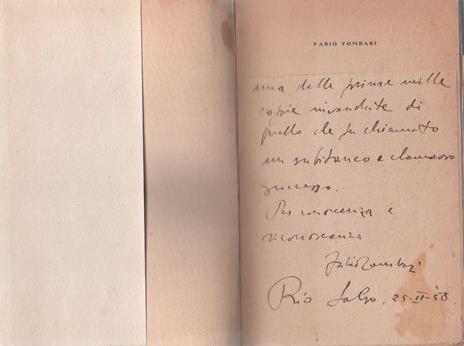 FABIO TOMBARI
una delle prime mille
copie invendute di
quello che fu chiamato
un subitaneo e clamoroso
successo.
Per conoscenza e
riconoscenza
Fabio Tombari
Rio Salso, 25-II-'58